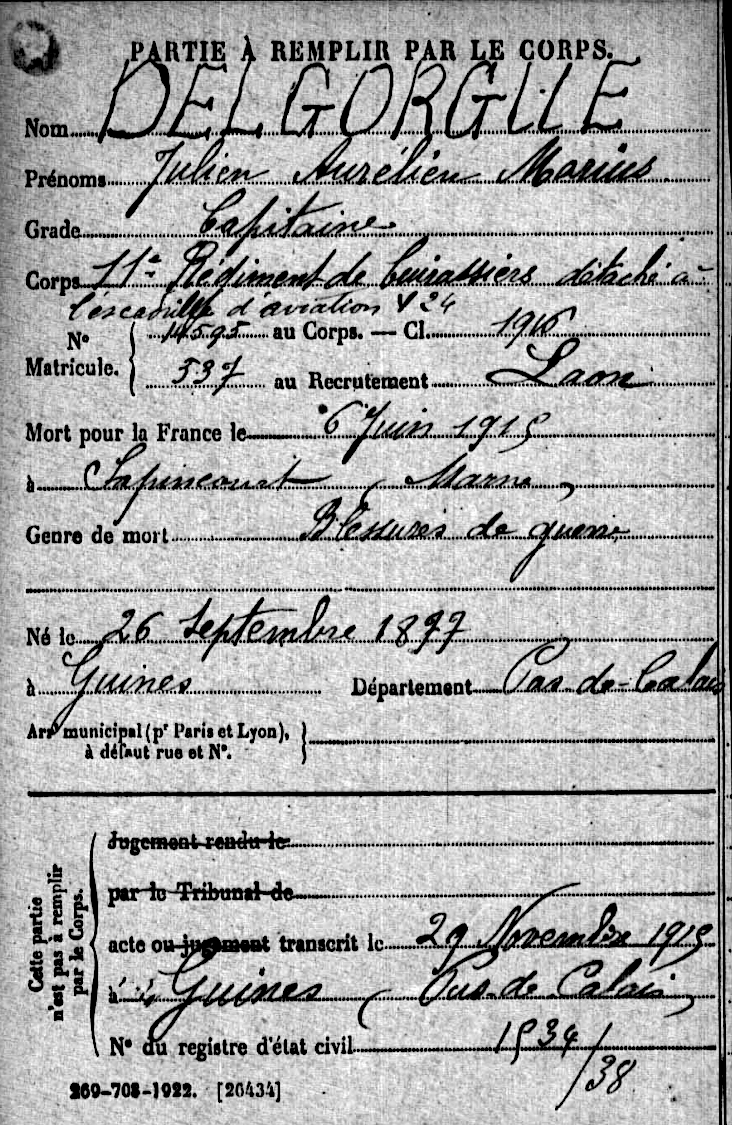 PARTIE À REMPLIR PAR LE CORPS.
Nom DELGORGUE
Prénoms Julien Aurélien Marius
Grade Capitaine
Corps 11e Régiment de Cuirassiers détaché à
l'escadrille d'aviation V 24
No Matricule. 14595 au Corps. — Cl. 1916
537 au Recrutement Laon
Mort pour la France le 6 Juin 1915
à Sapincourt (Marne)
Genre de mort Blessures de guerre
Né le 26 Septembre 1877
à Guines Département Pas-de-Calais
Arrt municipal (pr Paris et Lyon),
à défaut rue et No.
Cette partie n'est pas à remplir par le Corps.
Jugement rendu le
par le Tribunal de
acte ou jugement transcrit le 29 Novembre 1915
à Guines (Pas-de-Calais)
No du registre d'état civil 1534/38
269-708-1922. [26434]